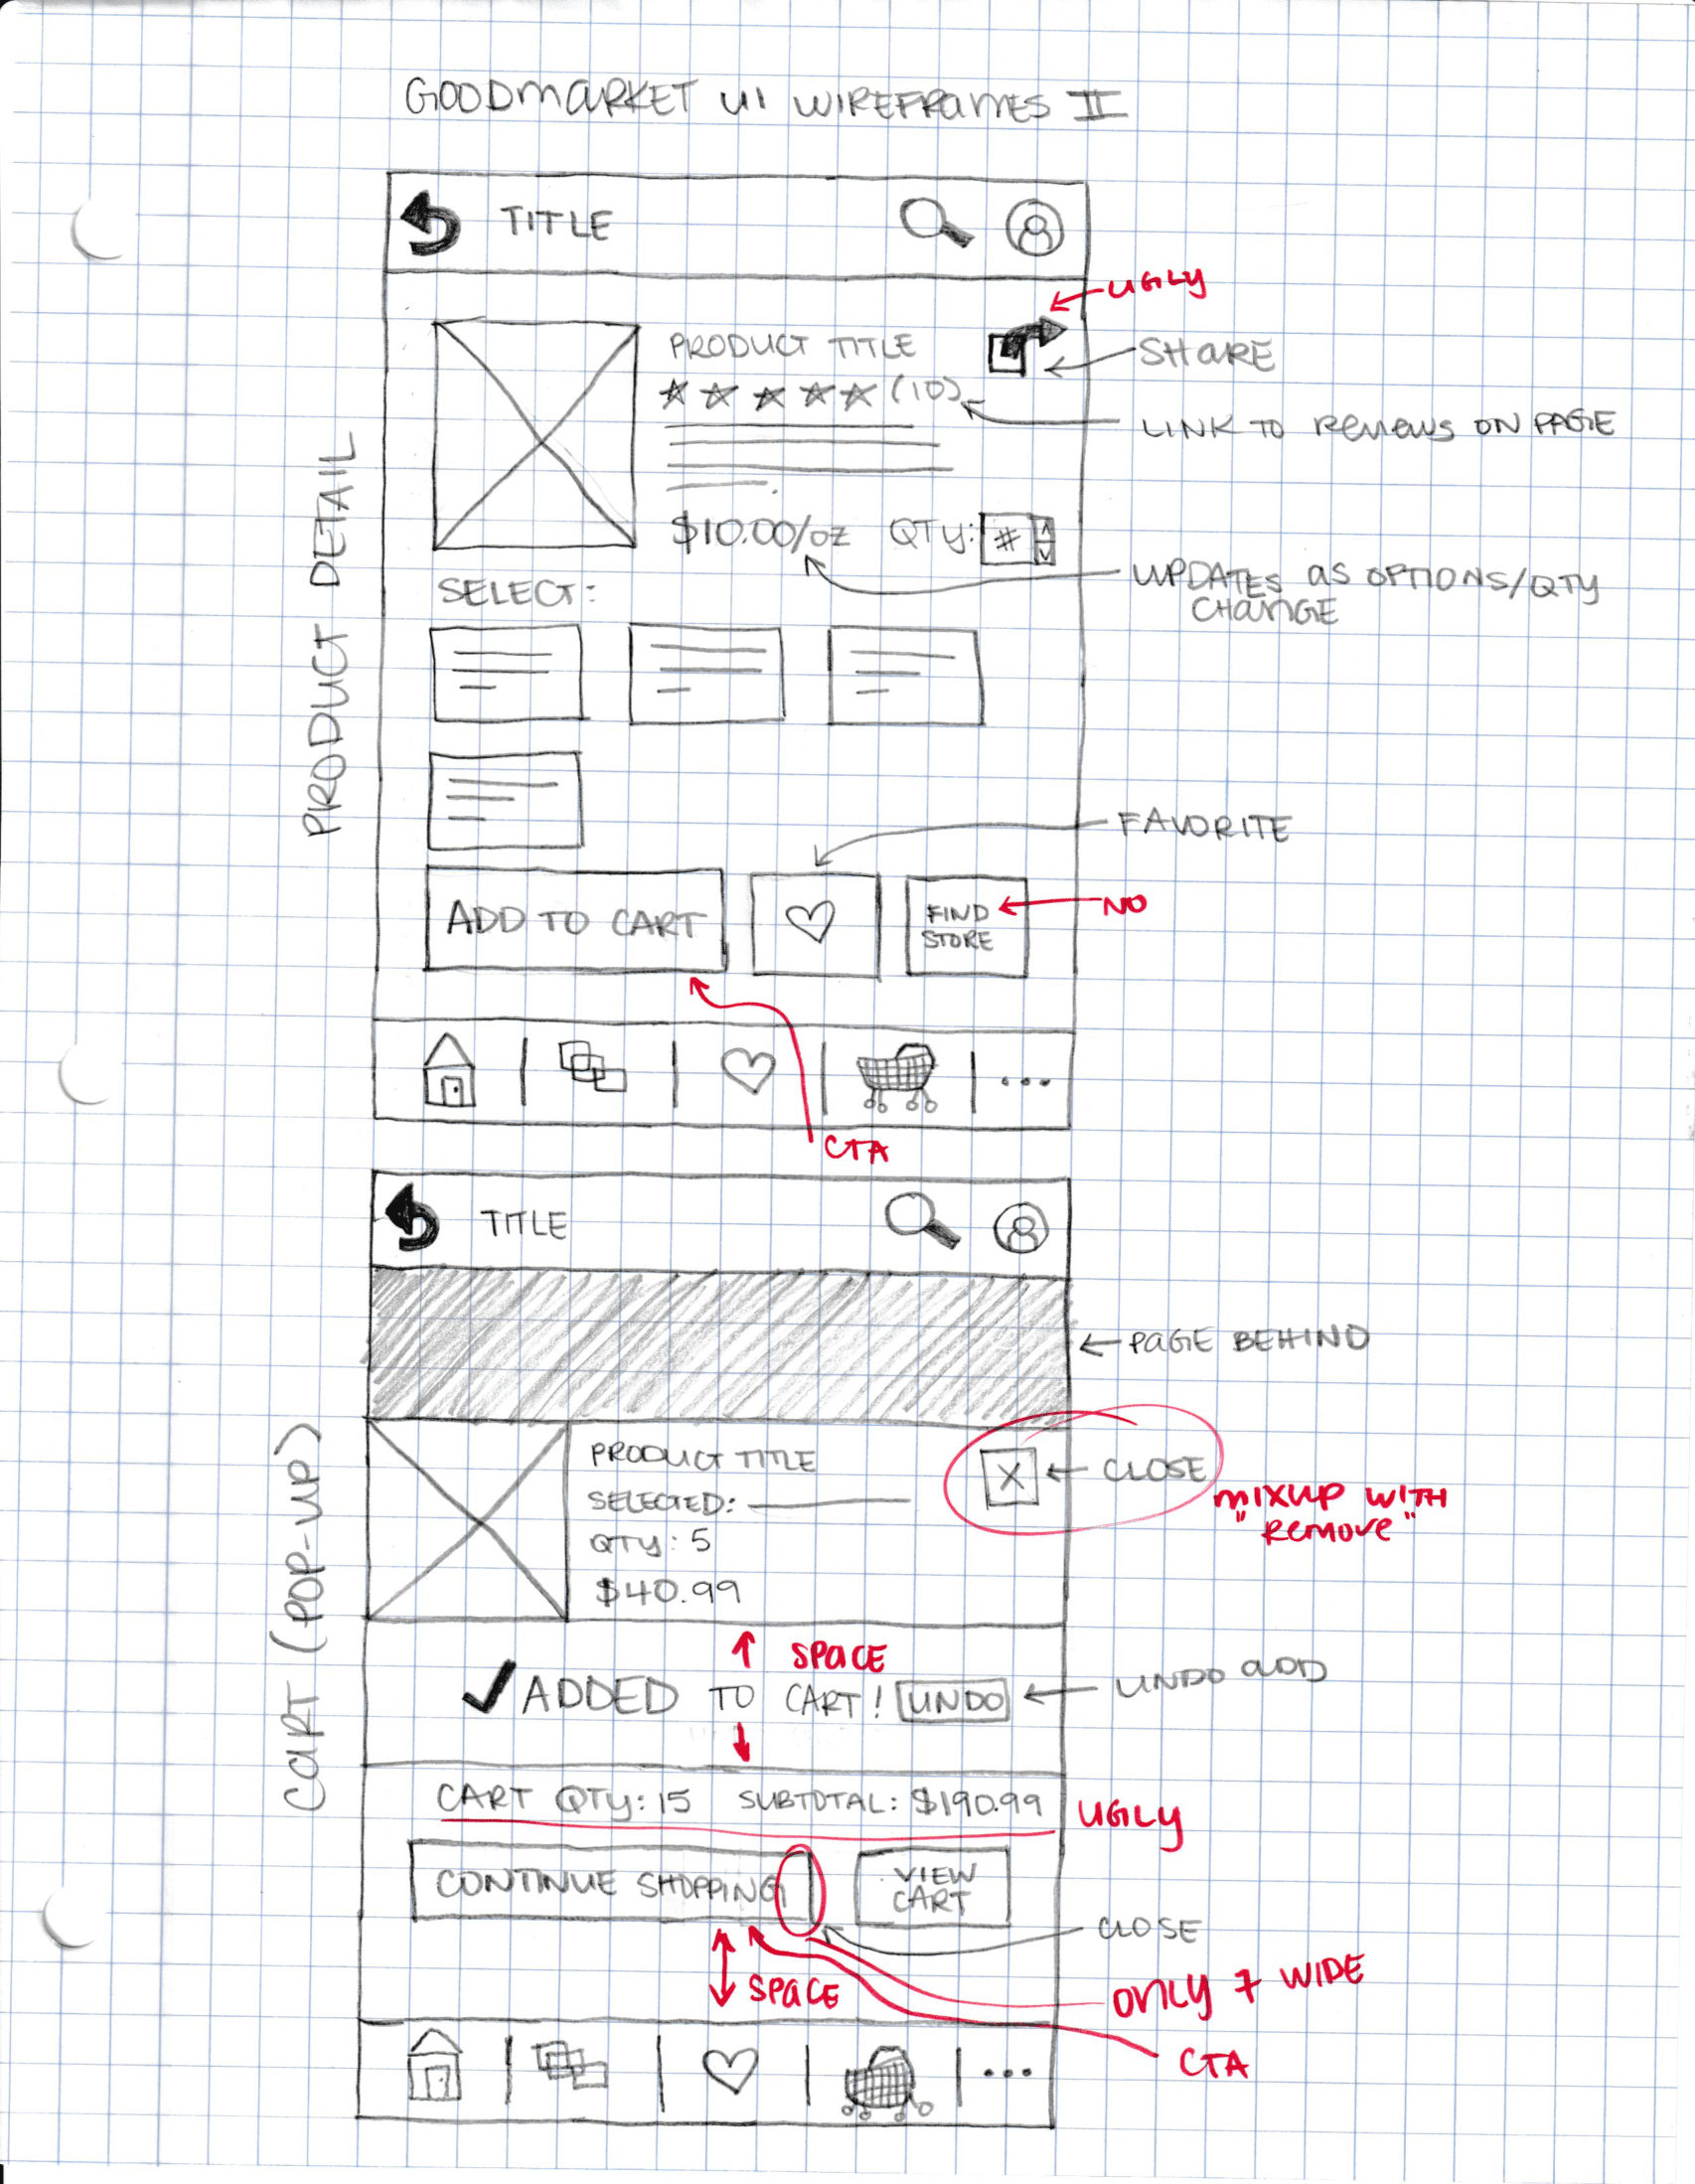 GOODMARKET UI WIREFRAMES II
PRODUCT DETAIL
TITLE
UGLY
PRODUCT TITLE
SHARE
(10)
LINK TO REVIEWS ON PAGE
$10.00/oz QTY: #
UPDATES AS OPTIONS/QTY
CHANGE
SELECT:
FAVORITE
ADD TO CART
FIND
STORE
NO
CTA
CART (POP-UP)
TITLE
PAGE BEHIND
PRODUCT TITLE
X
CLOSE
SELECTED:
MIXUP WITH
"REMOVE"
QTY: 5
$40.99
SPACE
✓ADDED TO CART! UNDO
UNDO ADD
CART QTY: 15 SUBTOTAL: $190.99
UGLY
CONTINUE SHOPPING
VIEW
CART
CLOSE
SPACE
ONLY 7 WIDE
CTA